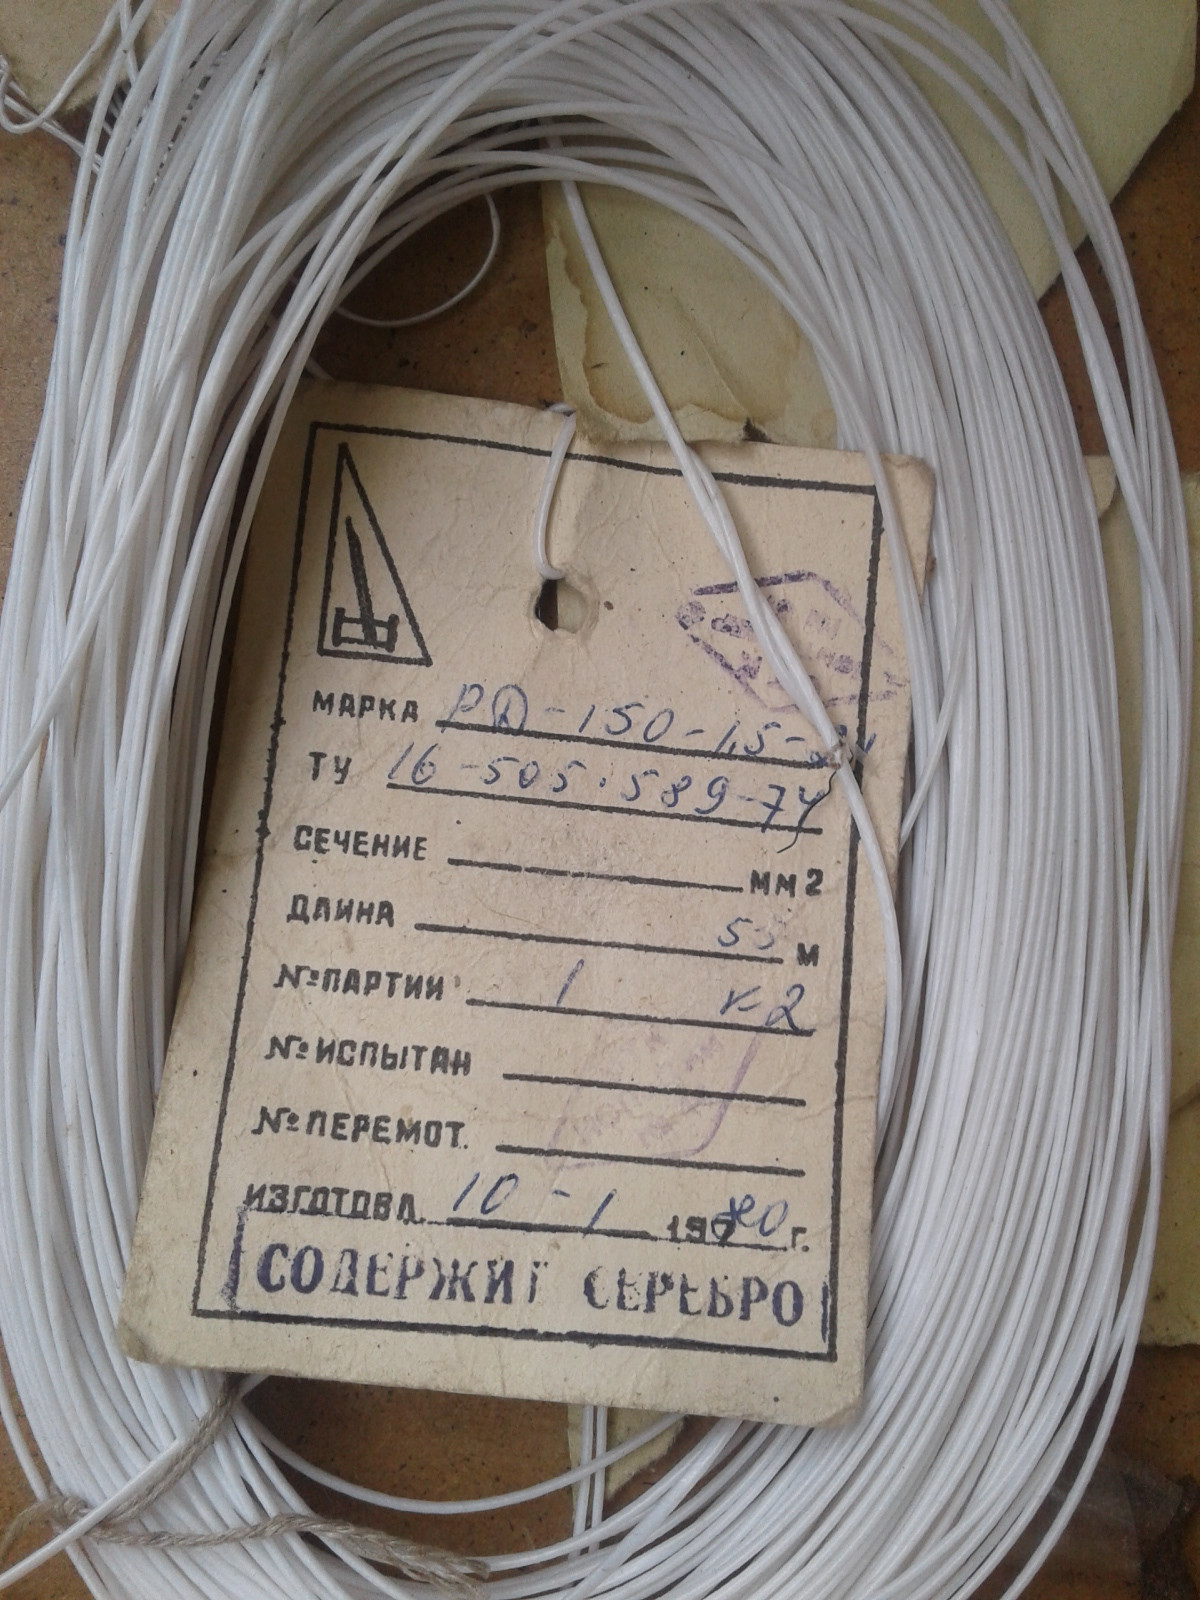 МАРКА РД-150-1,5-
ТУ 16-505.589-74
СЕЧЕНИЕ ММ2
ДЛИНА 55 М
№ПАРТИИ 1 к-2
№ИСПЫТАН
№ПЕРЕМОТ.
ИЗГОТОВЛ. 10-1 1980 г.
СОДЕРЖИТ СЕРЕБРО